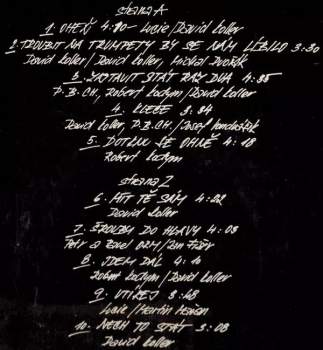 strana A
1. OHEŇ 4:20 - Lucie/David Koller
2. TROUBIT NA TRUMPETY BY SE NÁM LÍBILO 3:30
David Koller/David Koller, Michal Dvořák
3. ZASTAVIT STÁT RAZ DVA 4:35
P.B.CH., Robert Kodym/David Koller
4. KLEŠE 3:34
David Koller, P.B.CH./Josef
5. DOTKNI SE OHNĚ 4:18
Robert Kodym
strana Z
6. MÍT TĚ SÁM 4:22
David Koller
7. ŠROUBY DO HLAVY 4:03
Petr a Pavel ORM/
8. JDEM DÁL 4:10
Robert Kodym/David Koller
9. UTÍREJ 3:48
Lucie/Martin
10. NECH TO STÁT 3:08
David Koller